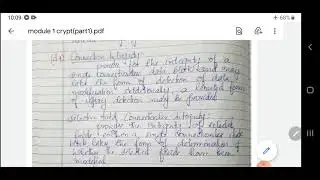 10:09
89%
module 1 crypt(part1).pdf
Connection Integrity
provides for the integrity of a
single connectionless data block and may
take the form of detection of data
modification. Additionally, a limited form
of replay detection may be provided
selective field Connectionless Integrity
provides the integrity of selected
fields within a single connectionless data
block takes the form of determination of
whether the selected fields have been
modified